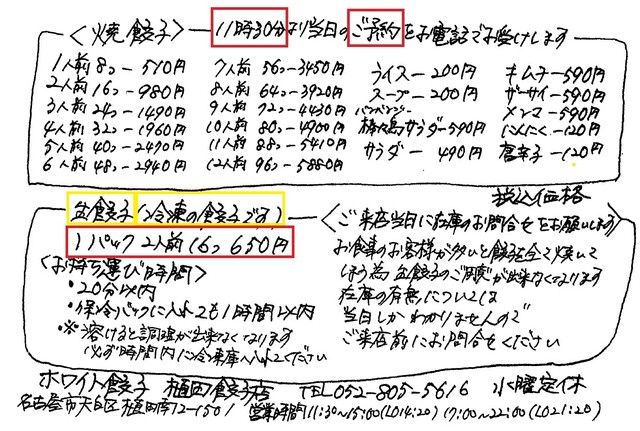 <焼餃子> 11時30分より当日のご予約をお電話でお受けします
1人前 8コ-510円
2人前 16コ-980円
3人前 24コ-1490円
4人前 32コ-1960円
5人前 40コ-2490円
6人前 48コ-2940円
7人前 56コ-3450円
8人前 64コ-3920円
9人前 72コ-4430円
10人前 80コ-4900円
11人前 88コ-5410円
12人前 96コ-5880円
ライス-200円
スープ-200円
バンバンジー
棒々鳥サラダー-590円
サラダー 490円
キムチ-590円
ザーサイ-590円
メンマ-590円
にんにく-120円
唐辛子-120円
税込価格
生餃子(冷凍の餃子です)
1パック 2人前 16コ 650円
<お持ち運び時間>
・20分以内
・保冷バックに入れても1時間以内
※溶けると調理が出来なくなります
必ず時間内に冷凍庫へ入れてください
<ご来店当日に在庫のお問合せをお願いします>
お食事のお客様が多いと餃子を全て焼いて
しまう為 生餃子のご用意が出来なくなります
在庫の有無については
当日しかわかりませんので
ご来店前にお問合せください
ホワイト餃子 植田餃子店 TEL052-805-5616 水曜定休
名古屋市天白区植田南2-1501 営業時間11:30~15:00(LO14:20) 17:00~22:00(LO21:20)